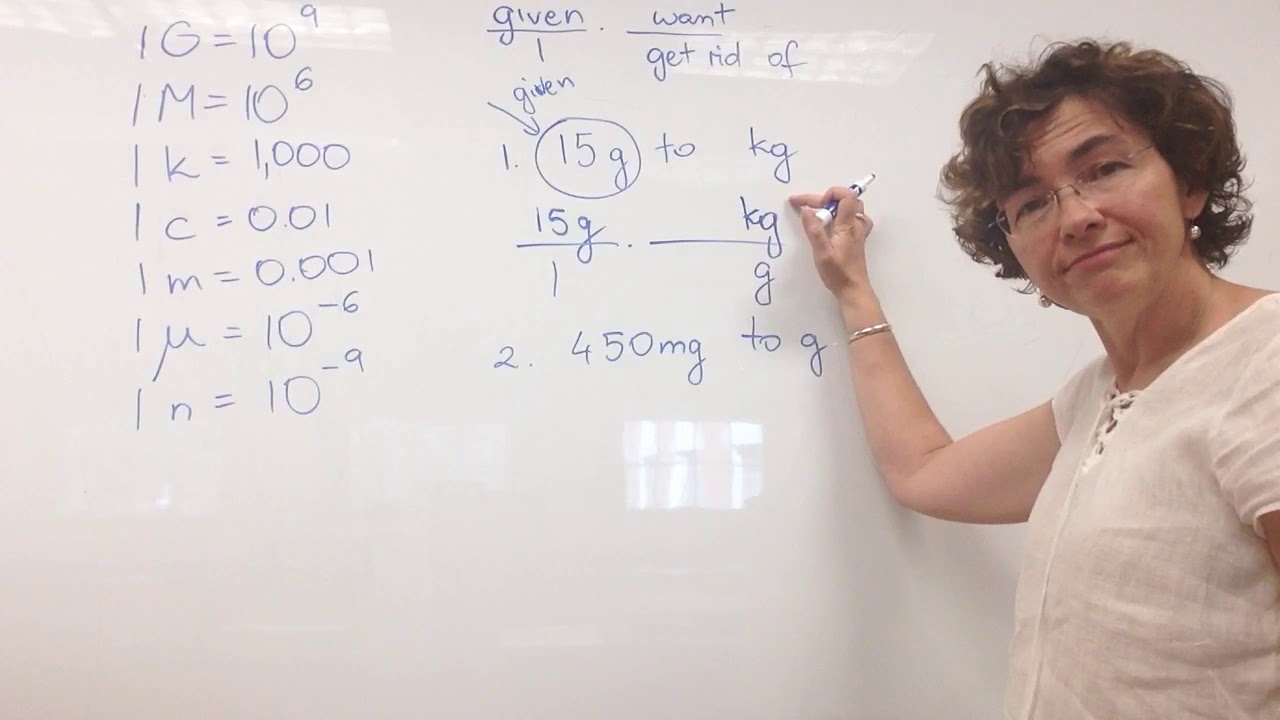 1 G = 10⁹
1 M = 10⁶
1 k = 1,000
1 c = 0.01
1 m = 0.001
1 μ = 10⁻⁶
1 n = 10⁻⁹
given/1 · want/get rid of
given
1. 15g to kg
15g/1 · kg/g
2. 450mg to g